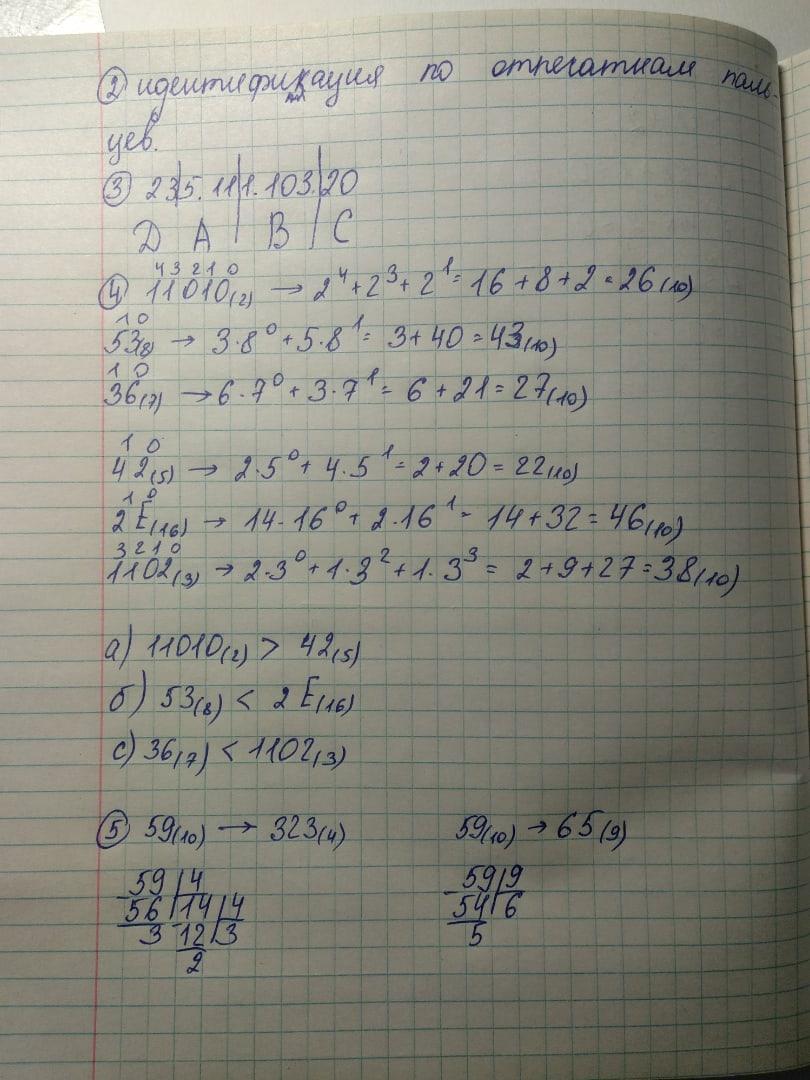 ② идентификация по отпечаткам паль-
цев.
③ 23|5.11|1.103.|20
D A | B | C
4 3 2 1 0
④ 11010(2) → 2⁴+2³+2¹=16+8+2=26(10)
1 0
53(8) → 3·8⁰+5·8¹=3+40=43(10)
1 0
36(7) → 6·7⁰+3·7¹=6+21=27(10)
1 0
42(5) → 2·5⁰+4·5¹=2+20=22(10)
1 0
2E(16) → 14·16⁰+2·16¹=14+32=46(10)
3 2 1 0
1102(3) → 2·3⁰+1·3²+1·3³=2+9+27=38(10)
а) 11010(2) > 42(5)
б) 53(8) < 2E(16)
с) 36(7) < 1102(3)
⑤ 59(10) → 323(4) 59(10) → 65(9)
59|4 59|9
56|14|4 54|6
3 12|3 5
2